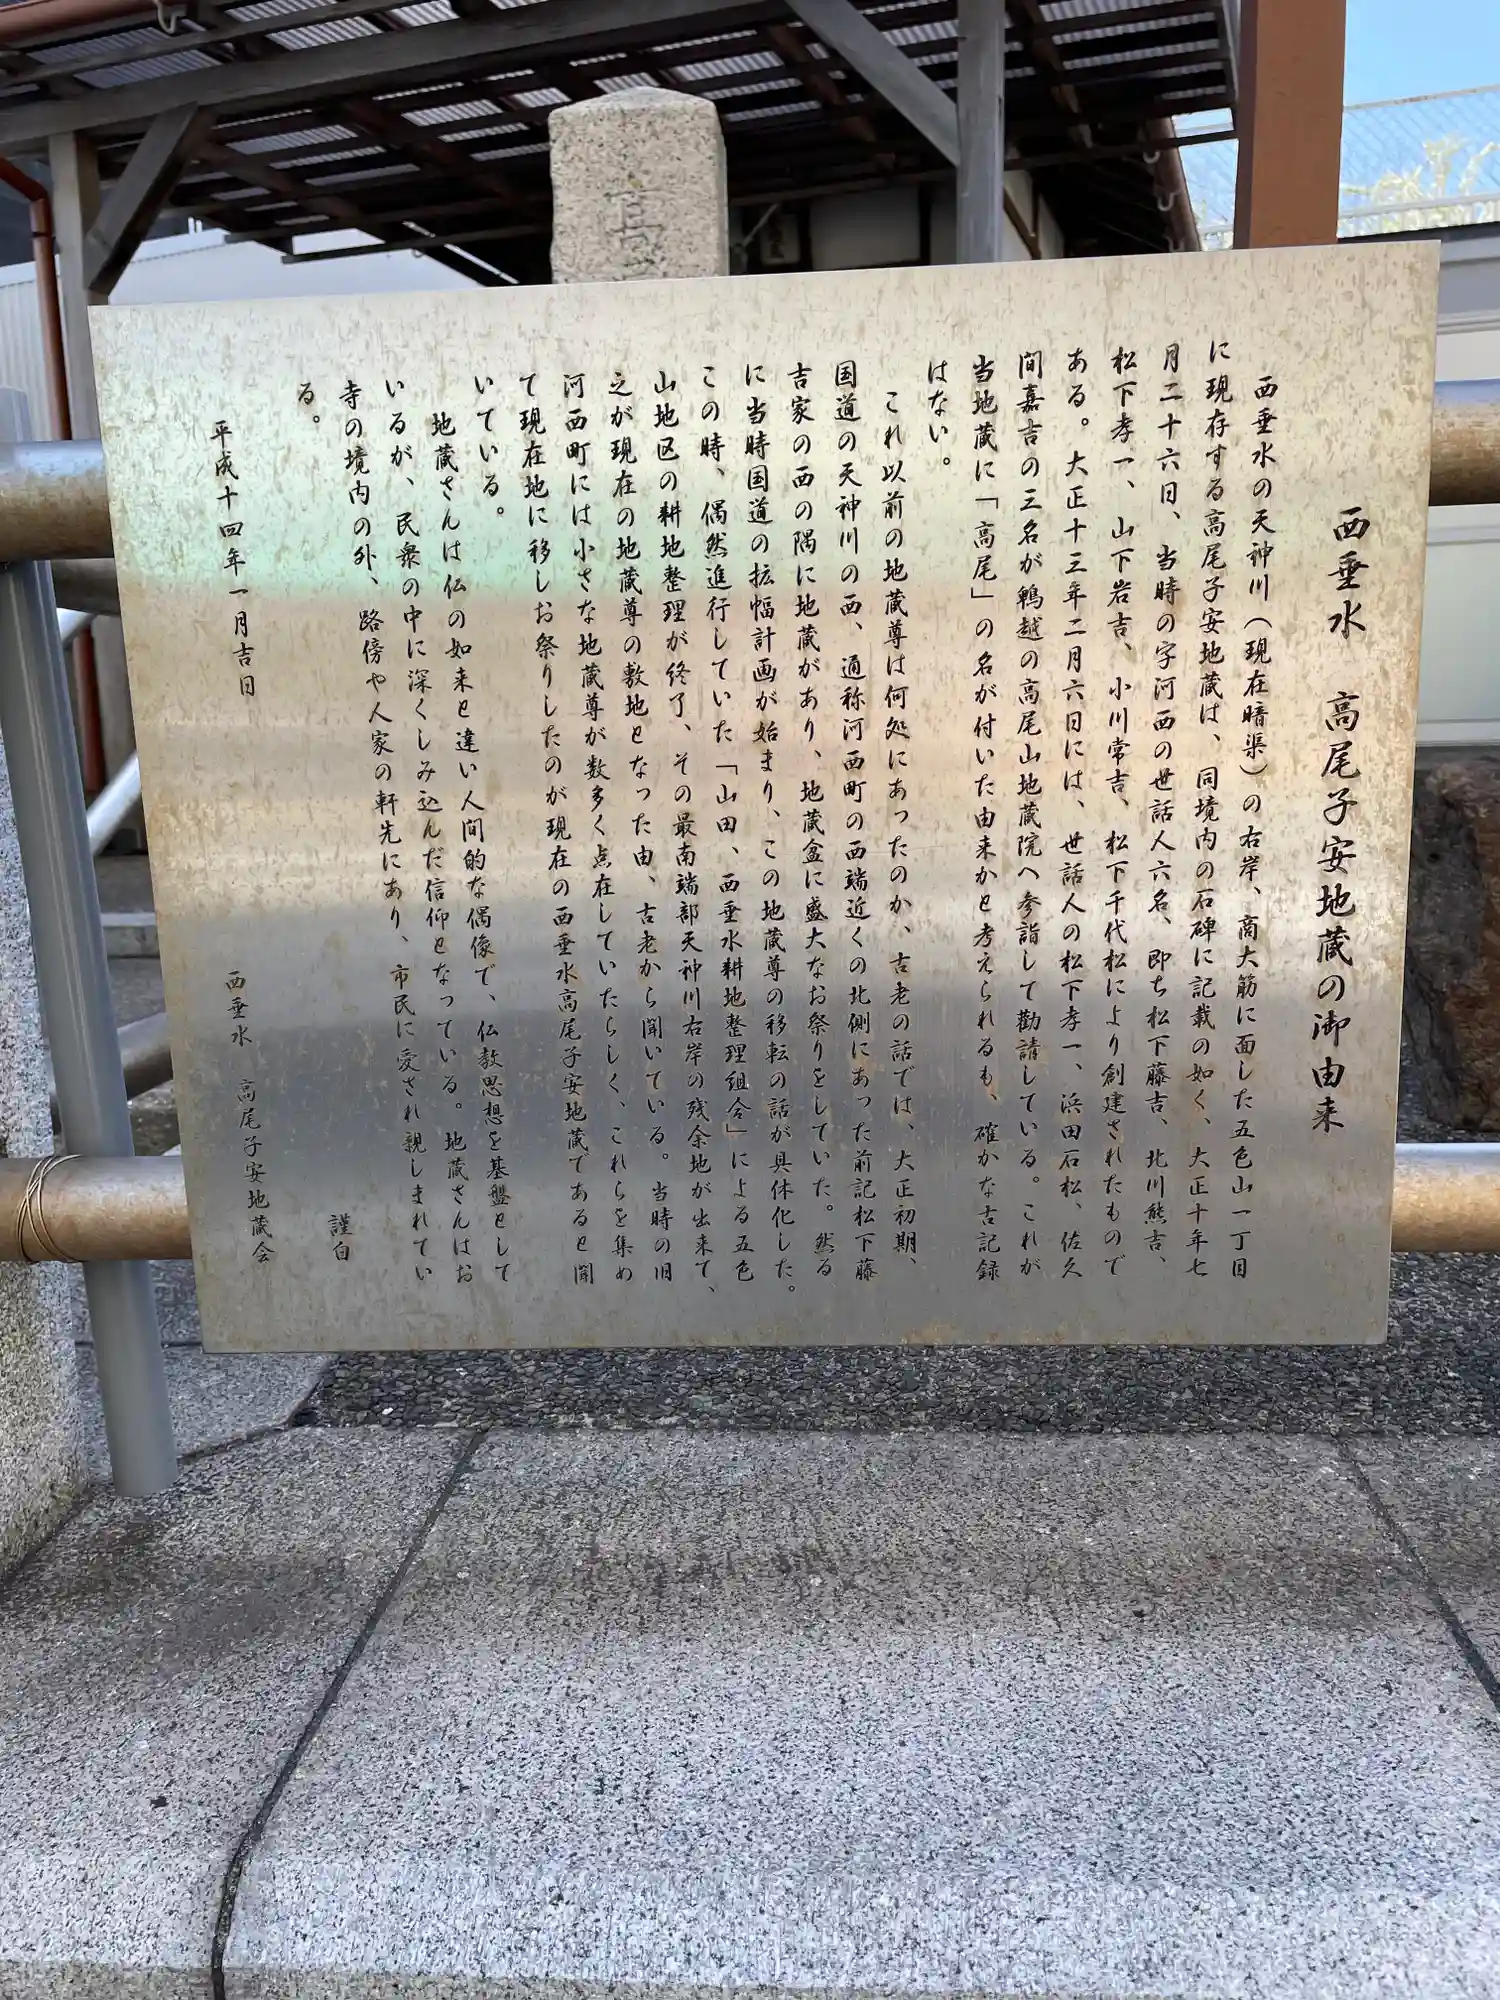 西垂水　高尾子安地蔵の御由来
西垂水の天神川（現在暗渠）の右岸、商大筋に面した五色山一丁目
に現存する高尾子安地蔵は、同境内の石碑に記載の如く、大正十年七
月二十六日、当時の字河西の世話人六名、即ち松下藤吉、北川熊吉、
松下孝一、山下岩吉、小川常吉、松下千代松により創建されたもので
ある。大正十三年二月六日には、世話人の松下孝一、浜田石松、佐久
間嘉吉の三名が鵯越の高尾山地蔵院へ参詣して勧請している。これが
当地蔵に「高尾」の名が付いた由来かと考えられるも、確かな古記録
はない。
これ以前の地蔵尊は何処にあったのか、古老の話では、大正初期、
国道の天神川の西、通称河西町の西端近くの北側にあった前記松下藤
吉家の西の隅に地蔵があり、地蔵盆に盛大なお祭りをしていた。然る
に当時国道の拡幅計画が始まり、この地蔵尊の移転の話が具体化した。
この時、偶然進行していた「山田、西垂水耕地整理組合」による五色
山地区の耕地整理が終了、その最南端部天神川右岸の残余地が出来て、
之が現在の地蔵尊の敷地となった由、古老から聞いている。当時の旧
河西町には小さな地蔵尊が数多く点在していたらしく、これらを集め
て現在地に移しお祭りしたのが現在の西垂水高尾子安地蔵であると聞
いている。
地蔵さんは仏の如来と違い人間的な偶像で、仏教思想を基盤として
いるが、民衆の中に深くしみ込んだ信仰となっている。地蔵さんはお
寺の境内の外、路傍や人家の軒先にあり、市民に愛され親しまれてい
る。
謹白
平成十四年一月吉日
西垂水　高尾子安地蔵会